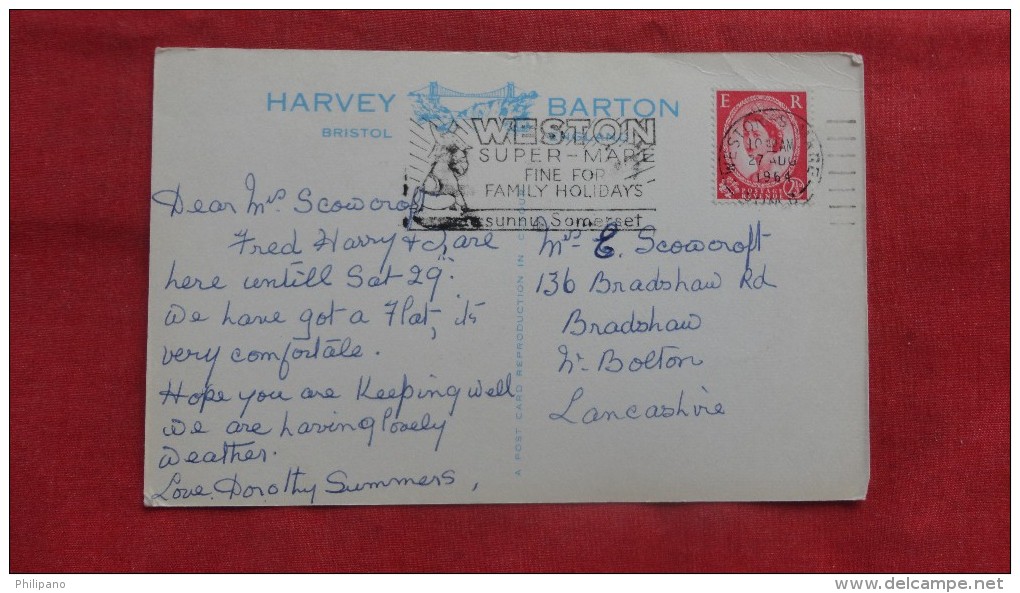 HARVEY BARTON
BRISTOL ENGLAND
WESTON
SUPER-MARE
FINE FOR
FAMILY HOLIDAYS
sunny Somerset
E R
WESTON-S-MARE
AM
27 AUG
1964
Dear Mrs Scowcrof
Fred Harry & I are
here untill Sat 29th.
We have got a Flat, its
very comfortale.
Hope you are Keeping well
we are having lovely
weather.
Love. Dorothy Summers,
A POST CARD REPRODUCTION IN COLOUR
Mrs C. Scowcroft
136 Bradshaw Rd
Bradshaw
Nr. Bolton
Lancashire
Philipano
www.delcampe.net